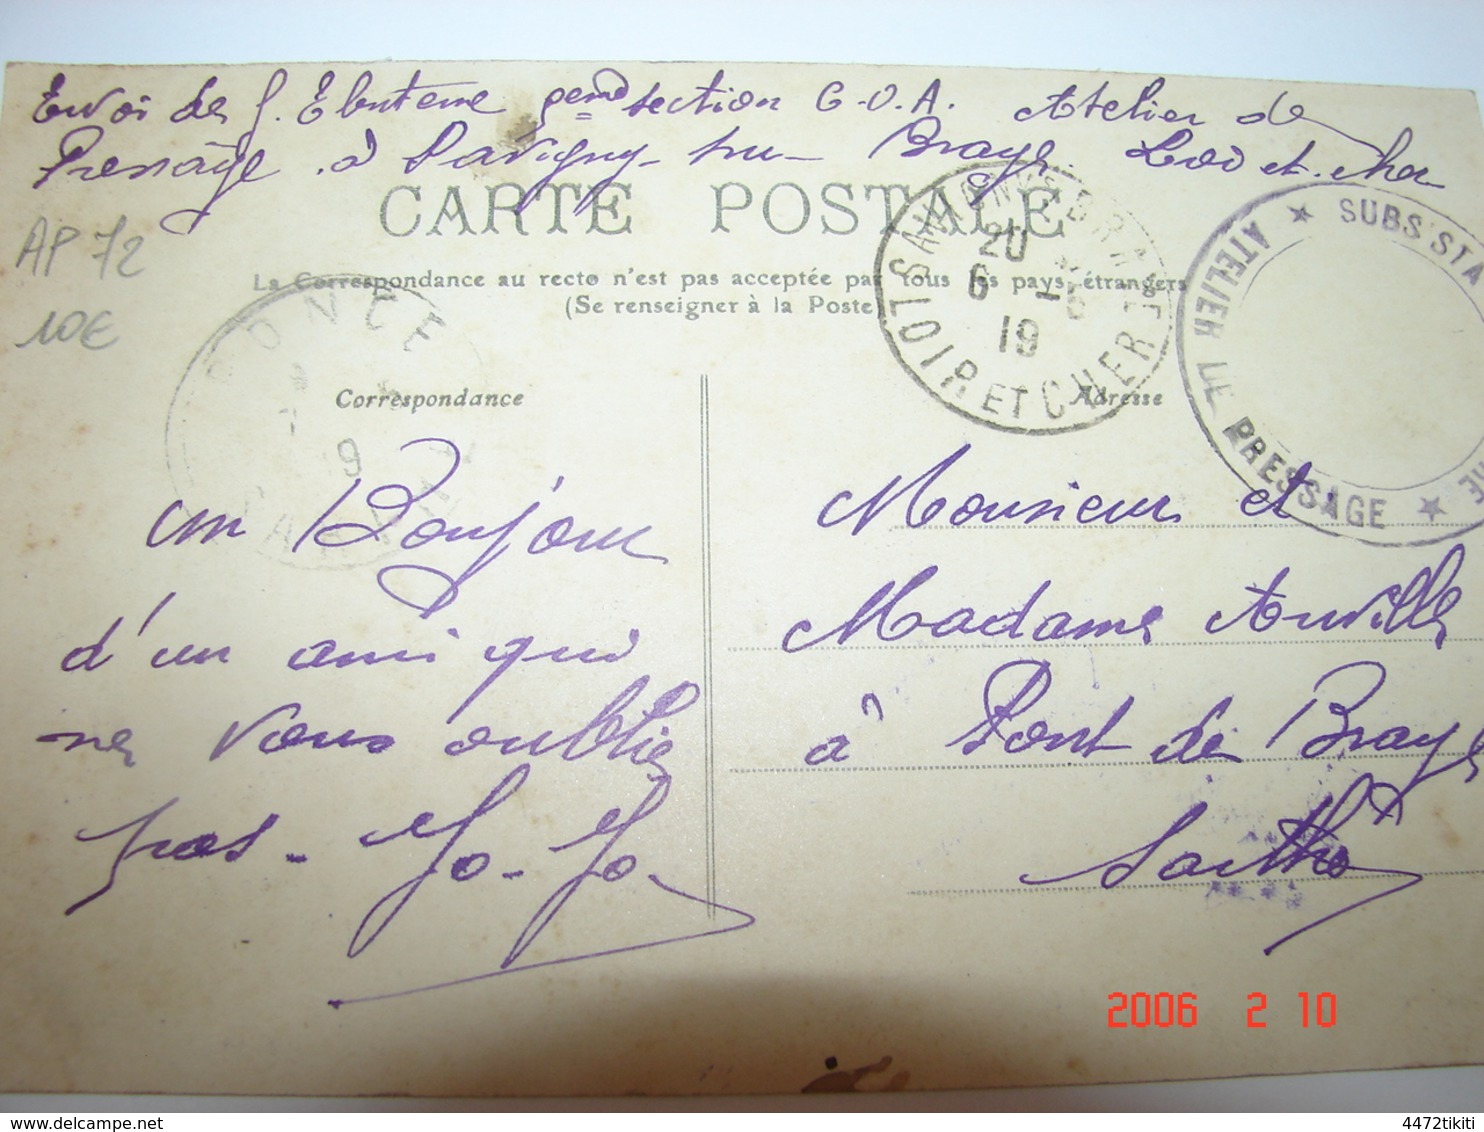 Envoi de J. Ebuterne 9eme section C.O.A. Atelier de
Pressage à Savigny-sur-Braye. Loir et cher
CARTE POSTALE
AP 72
10€
La Correspondance au recto n'est pas acceptée par tous les pays étrangers
(Se renseigner à la Poste)
SAVIGNY S BRAYE
20
6 -5
19
LOIR ET CHER
SUBS'STA
ATELIER DE PRESSAGE
Correspondance
Adresse
un Bonjour
d'un ami qui
ne vous oublie
pas - Jo-Jo.
Monsieur et
Madame Auville
à Pont de Braye
Sarthe
2006 2 10
delcampe.net
4472tikiti